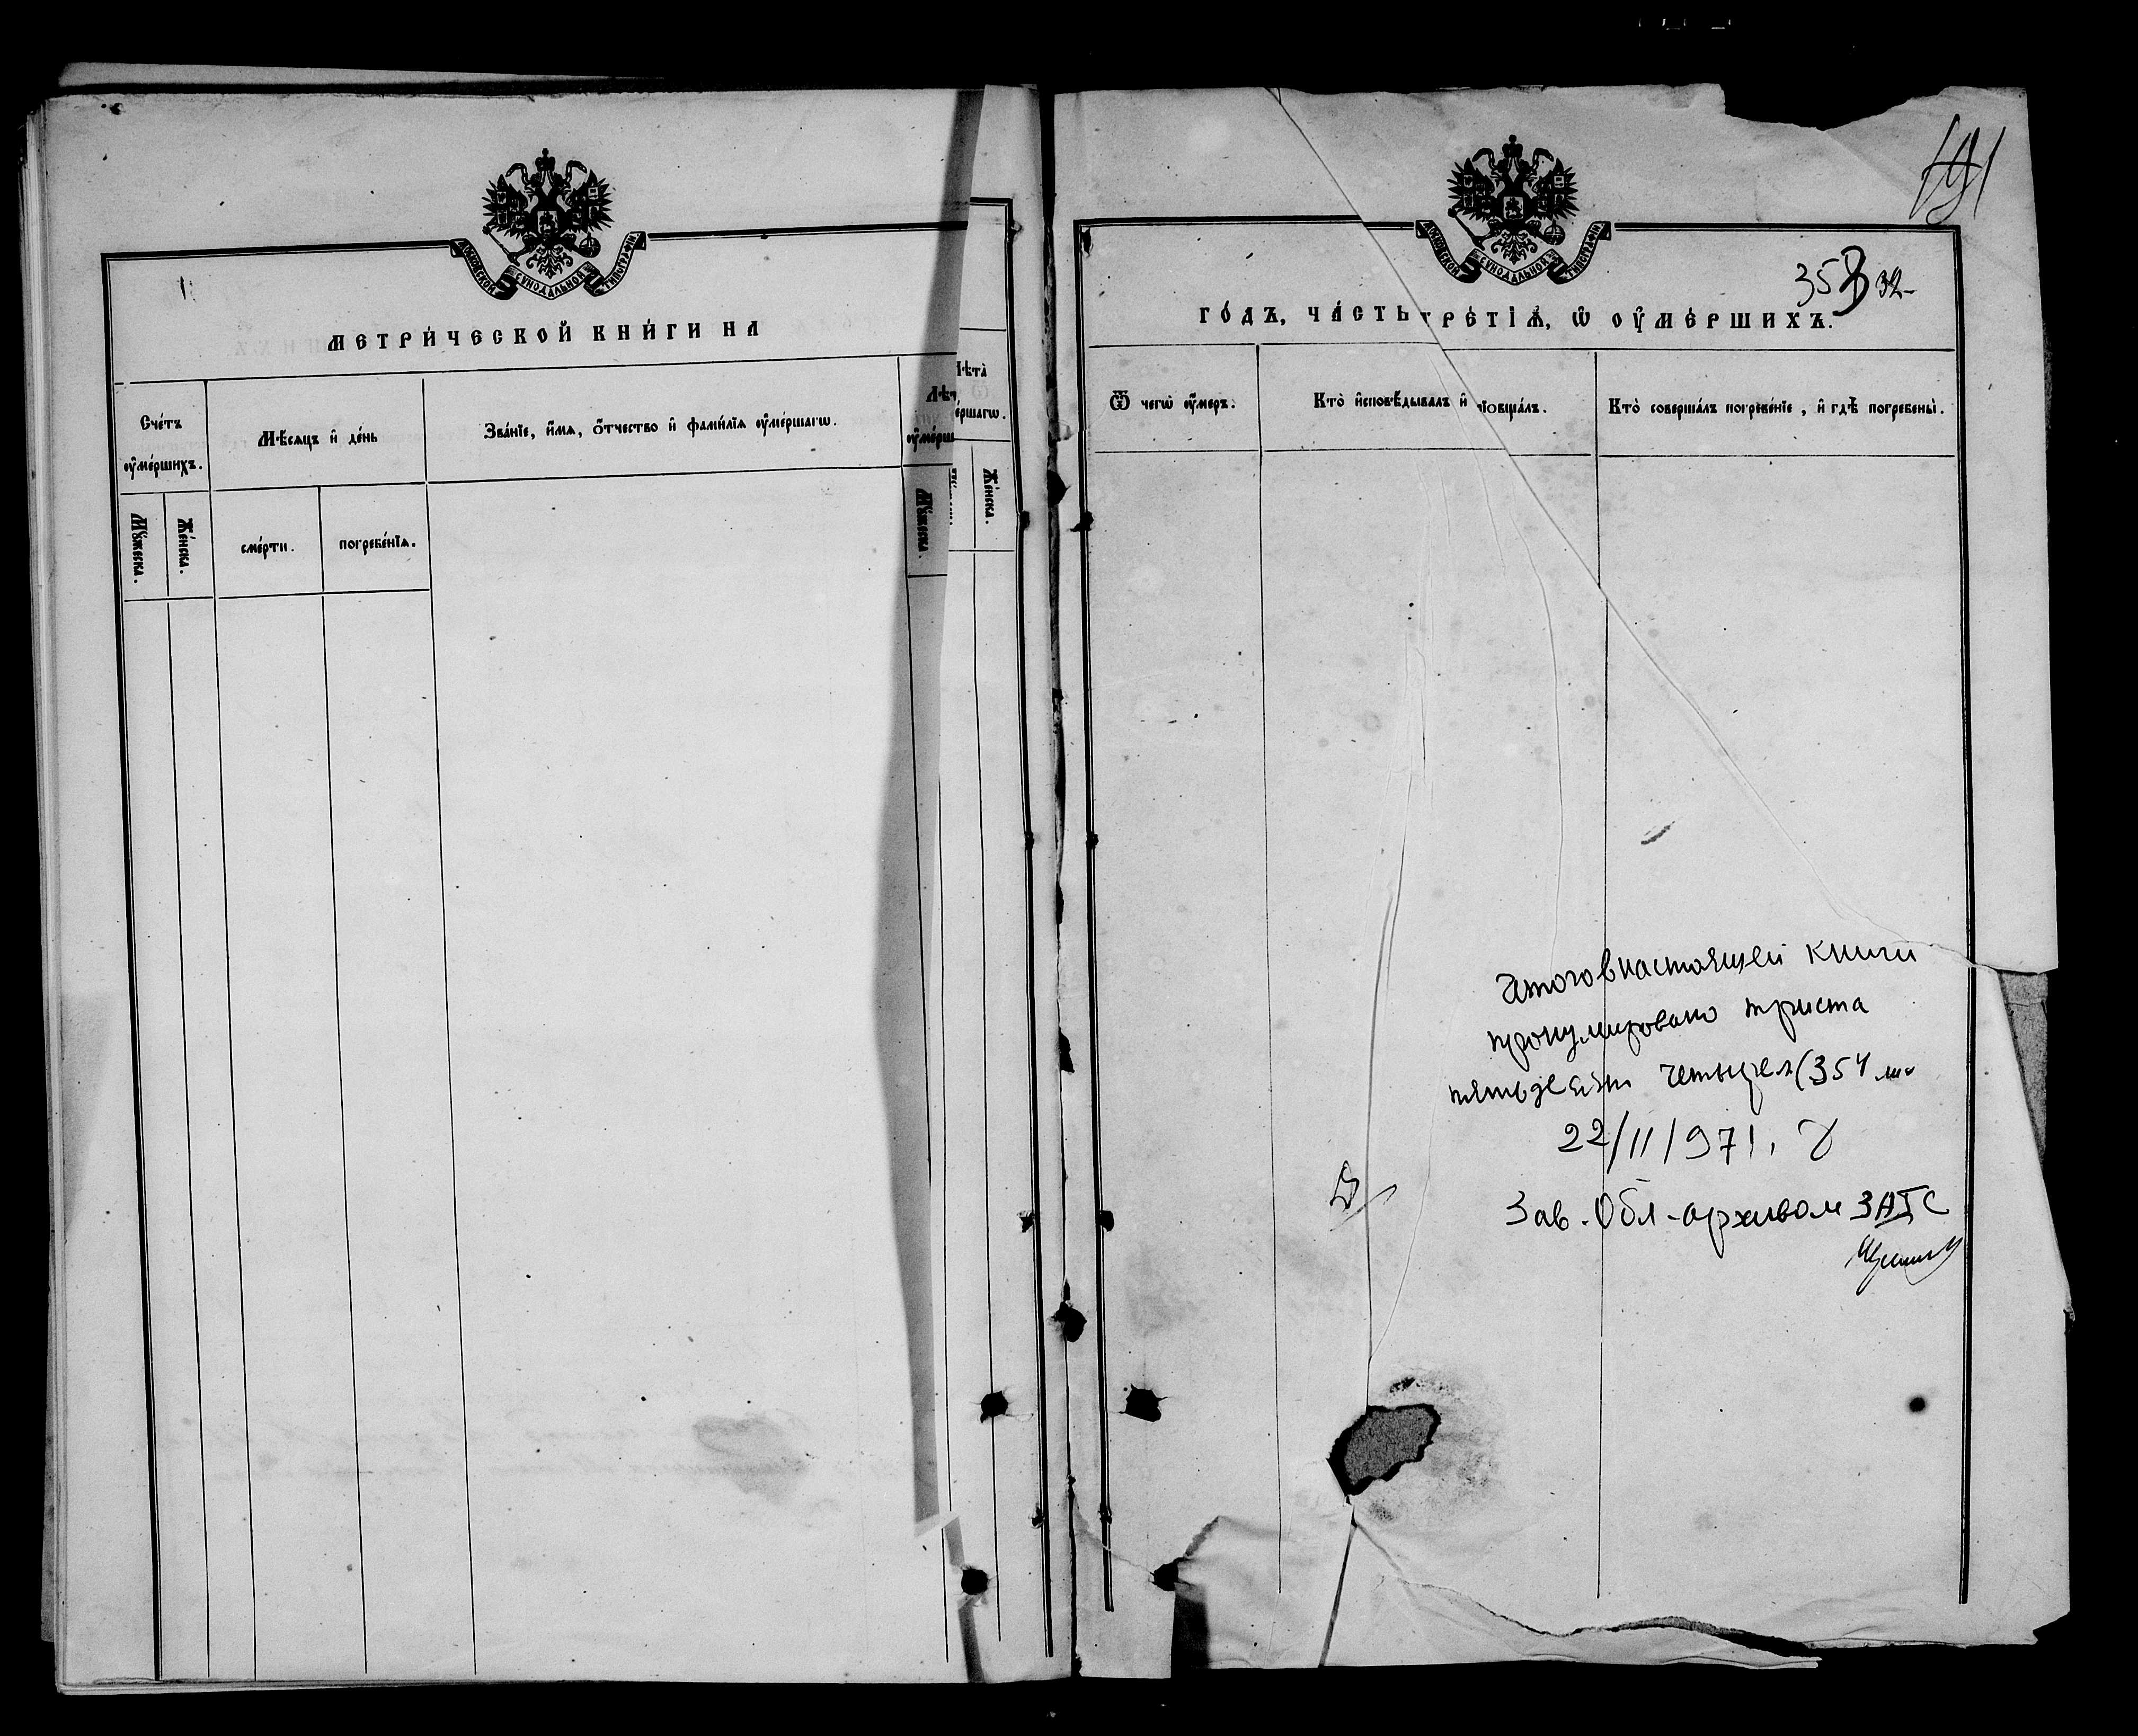 МОСКОВСКОЙ СУНОДАЛЬНОЙ ТИПОГРАФІИ
МЕТРИ́ЧЕСКОЙ КНИ́ГИ НА
Сче́тъ ᲂу҆ме́ршихъ.
Мѣ́сяцъ и҆ де́нь
Зва́нїе, и҆́мѧ, ѻ҆́тчество и҆ фами́лїѧ ᲂу҆ме́ршагѡ.
Лѣ́та̀
ᲂу҆ме́ршагѡ.
Мꙋ́жеска.
Же́нска.
сме́рти.
погребе́нїѧ.
Мꙋ́жеска.
Же́нска.
191
МОСКОВСКОЙ СУНОДАЛЬНОЙ ТИПОГРАФІИ
ГО́ДЪ, ЧА́СТЬ ТРЕ́ТІѦ, Ѡ҆ ОУ҆МЕ́РШИХЪ.
Ѿ чегѡ̀ ᲂу҆́меръ.
Кто̀ и҆сповѣ́дывалъ и҆ прїѡбща́лъ.
Кто̀ соверша́лъ погребе́нїе, и҆ гдѣ̀ погребены̀.
Итого в настоящей книги
пронумировано триста
пятьдесят четыре (354
22/II/971. г
Зав. Обл-архивом ЗАГС